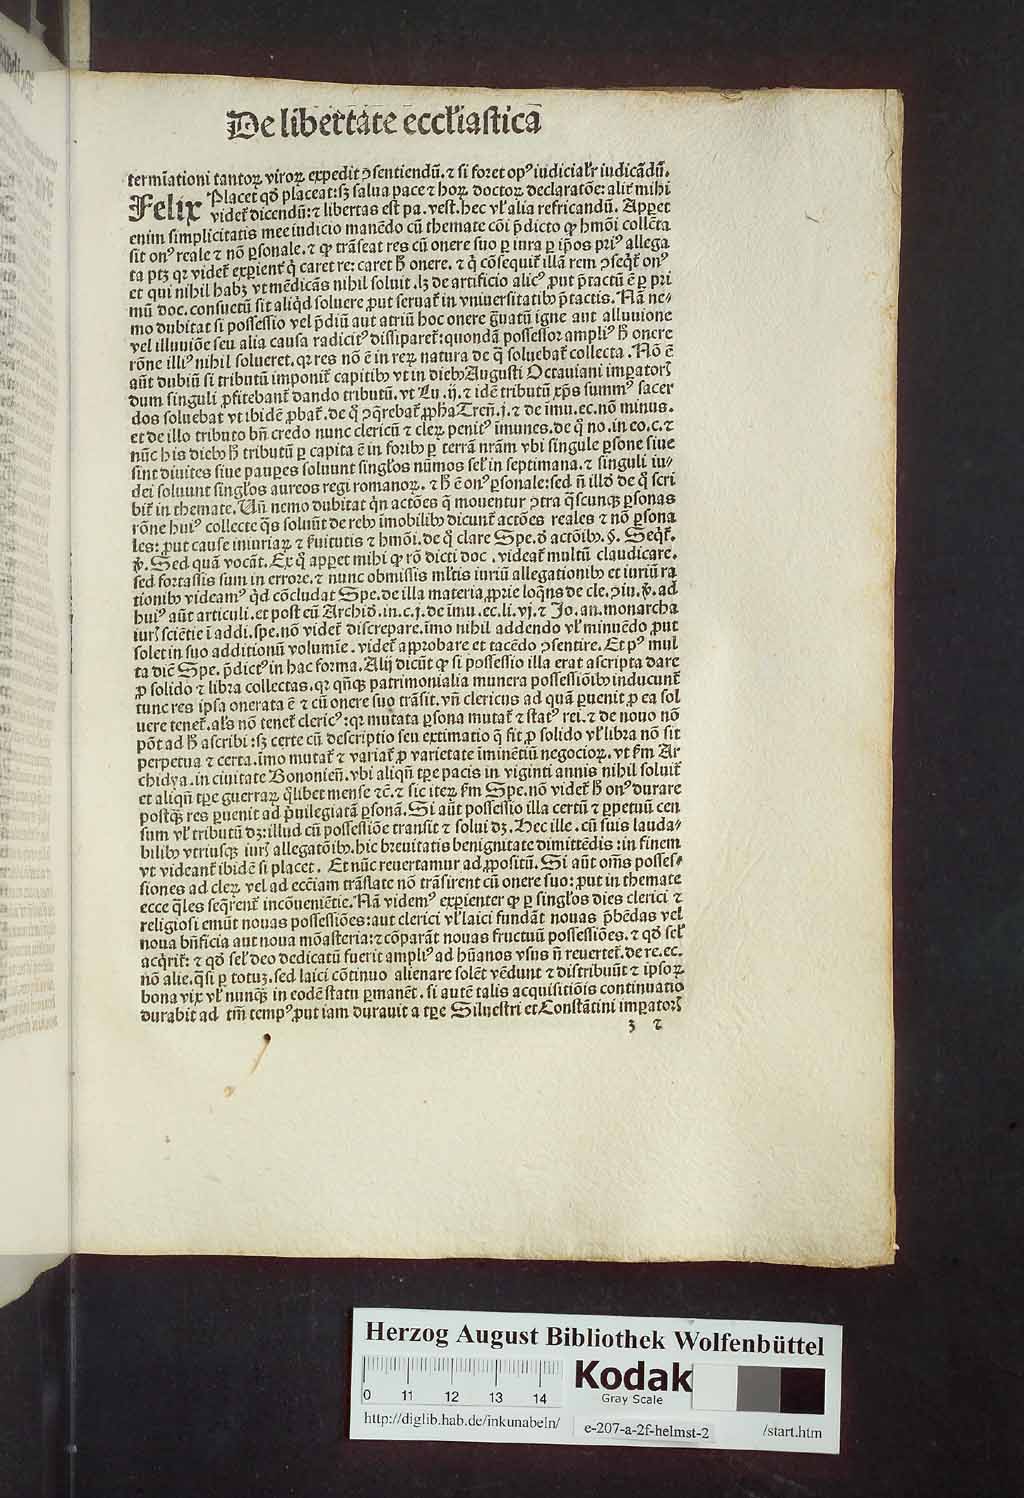 De libertate eccl'iasticā
termīationi tantoꝝ viroꝝ expedit ꝯsentiendū. ⁊ si foret opꝰ iudicialr̄ iudicādū.
Felix Placet qđ placeat: sꝫ salua pace ⁊ hoꝝ doctoꝝ declaratōe: alit̄ mihi
videt̄ dicendū: ⁊ libertas est pa. vest. hec vl' alia refricandū. Apꝑet
enim simplicitatis mee iudicio manēdo cū themate cōi p̄dicto ꝙ hmōi collecta
sit onꝰ reale ⁊ nō ꝑsonale. ⁊ ꝙ trāseat res cū onere suo ꝑ iura ꝑ ip̄os priꝰ allega
ta ptꝫ qꝛ videt̄ experient̄ q̇ caret re: caret ħ onere. ⁊ q̇ cōsequit̄ illā rem ꝯseqt̄ onꝰ
et qui nihil habꝫ vt mēdicās nihil soluit. lꝫ de artificio alicꝰ ꝓut p̄tactū ē ꝑ pri
mū doc. consuetū sit aliqd soluere ꝓut seruat̄ in vniuersitatibꝰ p̄tactis. Nā ne⸗
mo dubitat si possessio vel p̄diū aut atriū hoc onere g̈uatū igne aut alluuione
vel illuuiōe seu alia causa radicitꝰ dissiparet̄: quondā possessor ampliꝰ ħ onere
rōne illiꝰ nihil solueret. qꝛ res nō ē in reꝝ natura de q̄ soluebat̄ collecta. Nō ē
aūt dubiū si tributū imponit̄ capitibꝰ vt in diebꝰ Augusti Octauiani imꝑatorꝭ
dum singuli ꝓfitebant̄ dando tributū. vt Lu. ij. ⁊ idē tributū xp̄s summꝰ sacer
dos soluebat vt ibidē ꝓbat̄. de q̊ ꝯq̄rebat̄ ꝓpħa Tren̄. j. ⁊ de imu. ec. nō minus.
et de illo tributo bn̄ credo nunc clericū ⁊ cleꝝ penitꝰ imunes. de q̊ no. in eo. c. ⁊
nūc his diebꝰ ħ tributū ꝑ capita ē in foribꝰ ꝑ terrā nrām vbi singule ꝑsone siue
sint diuites siue pauꝑes soluunt singl'os nūmos sel' in septimana. ⁊ singuli iu⸗
dei soluunt singl'os aureos regi romanoꝝ. ⁊ ħ ē onꝰ ꝑsonale: sed n̄ illd̄ de q̊ scri
bit̄ in themate. Vn̄ nemo dubitat qn̄ actōes q̄ mouentur ꝯtra q̄scunqꝫ ꝑsonas
rōne huiꝰ collecte q̄s soluūt de rebꝰ īmobilibꝰ dicunt̄ actōes reales ⁊ nō ꝑsona
les: ꝓut cause iniuriaꝝ ⁊ ẜuitutis ⁊ hmōi. de q̊ clare Spe. d̄ actōibꝰ. §. Seqt̄.
ꝟ. Sed quā vocāt. Ex q̊ apꝑet mihi ꝙ rō dicti doc. videat̄ multū claudicare.
sed fortassis sum in errore. ⁊ nunc obmissis ml'tis iuriū allegationibꝰ et iuriū ra
tionibꝰ videamꝰ qd cōcludat Spe. de illa materia ꝓprie loqn̄s de cle. ꝯiu. ꝟ. ad
huiꝰ aūt articuli. et post eū Archid̄. in. c. j. de imu. ec. li. vj. ⁊ Jo. an. monarcha
iurꝭ sciētie ī addi. spe. nō videt̄ discrepare. īmo nihil addendo vl' minuēdo ꝓut
solet in suo additionū volumīe. videt̄ approbare et tacēdo ꝯsentire. Et pꝰ mul
ta dic̄ Spe. p̄dictꝰ in hac forma. Alij dicūt ꝙ si possessio illa erat ascripta dare
ꝓ solido ⁊ libra collectas. qꝛ qn̄qꝫ patrimonialia munera possessiōibꝰ inducunt̄
tunc res ipsa onerata ē ⁊ cū onere suo trāsit. vn̄ clericus ad quā ꝑuenit ꝓ ea sol
uere tenet̄. al's nō tenet̄ clericꝰ: qꝛ mutata ꝑsona mutat̄ ⁊ statꝰ rei. ⁊ de nouo nō
pōt ad ħ ascribi: sꝫ certe cū descriptio seu extimatio q̄ fit ꝓ solido vl' libra nō sit
perpetua ⁊ certa. īmo mutat̄ ⁊ variat̄ ꝓ varietate īminētiū negocioꝝ. vt ẜm Ar
chidya. in ciuitate Bononien̄. vbi aliqn̄ tꝑe pacis in viginti annis nihil soluit̄
et aliqn̄ tꝑe guerraꝝ q̊libet mense ⁊c̄. ⁊ sic iteꝝ ẜm Spe. nō videt̄ ħ onꝰ durare
postqꝫ res ꝑuenit ad p̄uilegiatā ꝑsonā. Si aūt possessio illa certū ⁊ ꝑpetuū cen
sum vl' tributū dꝫ: illud cū possessiōe transit ⁊ solui dꝫ. Hec ille. cū suis lauda⸗
bilibꝰ vtriusqꝫ iurꝭ allegatōibꝰ. hic breuitatis benignitate dimittēdis: in finem
vt videant̄ ibidē si placet. Et nūc reuertamur ad ꝓpositū. Si aūt om̄s posses⸗
siones ad cleꝝ vel ad ecciam trāslate nō trāsirent cū onere suo: ꝓut in themate
ecce q̄les seqrent̄ incōuenientie. Nā videmꝰ exꝑienter ꝙ ꝑ singl'os dies clerici ⁊
religiosi emūt nouas possessiōes: aut clerici vl' laici fundāt nouas p̄bēdas vel
noua bn̄ficia aut noua mōasteria: ⁊ cōparāt nouas fructuū possessiōes. ⁊ qđ sel'
acqrit̄: ⁊ qđ sel' deo dedicatū fuerit ampliꝰ ad hūanos vsus n̄ reuertet̄. de re. ec.
nō alie. q̄si ꝑ totuꝫ. sed laici cōtinuo alienare solēt vēdunt ⁊ distribuūt ⁊ ipsoꝝ
bona vix vl' nunqꝫ in eodē statu ꝑmanēt. si autē talis acquisitiōis continuatio
durabit ad tm̄ tempꝰ ꝓut iam durauit a tꝑe Siluestri et Constātini imꝑatorꝭ
3 ⁊
Herzog August Bibliothek Wolfenbüttel
Kodak
Gray Scale
0 11 12 13 14
http://diglib.hab.de/inkunabeln/ e-207-a-2f-helmst-2 /start.htm